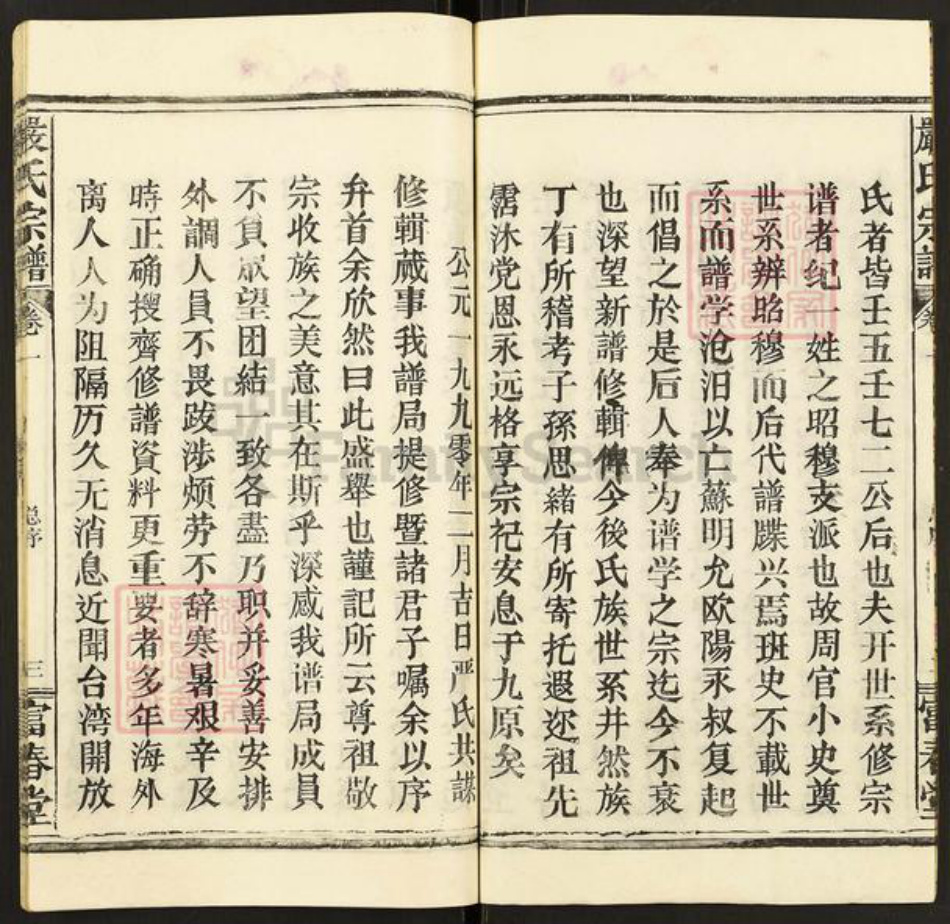 氏者皆壬五壬七二公后也夫开世系修宗
谱者纪一姓之昭穆支派也故周官小史奠
世系辨昭穆而后代譜牒兴焉班史不載世
系而譜学沦汨以亡蘇明允欧陽永叔复起
而倡之於是后人奉为谱学之宗迄今不衰
也深望新譜修輯俾今後氏族世系井然族
丁有所稽考子孫思緒有所寄托遐迩祖先
霑沐党恩永远格享宗祀安息于九原矣
公元一九九零年二月吉日严氏共謀
修輯蒇事我譜局提修暨諸君子嘱余以序
弁首余欣然曰此盛舉也謹記所云尊祖敬
宗收族之美意其在斯乎深感我谱局成員
不負眾望团結一致各盡乃职并妥善安排
外調人員不畏跋涉烦劳不辞寒暑艰辛及
時正确搜齊修譜資料更重要者多年海外
离人人为阻隔历久无消息近聞台湾開放
嚴氏宗譜
卷一
总序
三
富春堂
FamilySearch